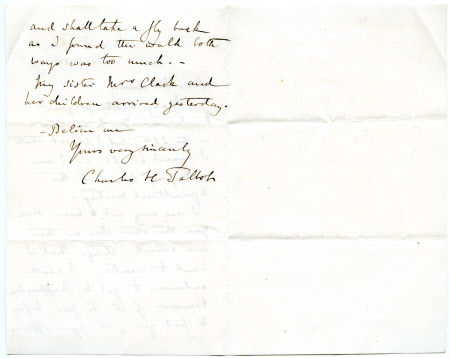 and shall take a fly back
as I found the walk both
ways was too much. -
My sister Mrs Clark and
her children arrived yesterday.
- Believe me
Yours very sincerely
Charles H Talbot